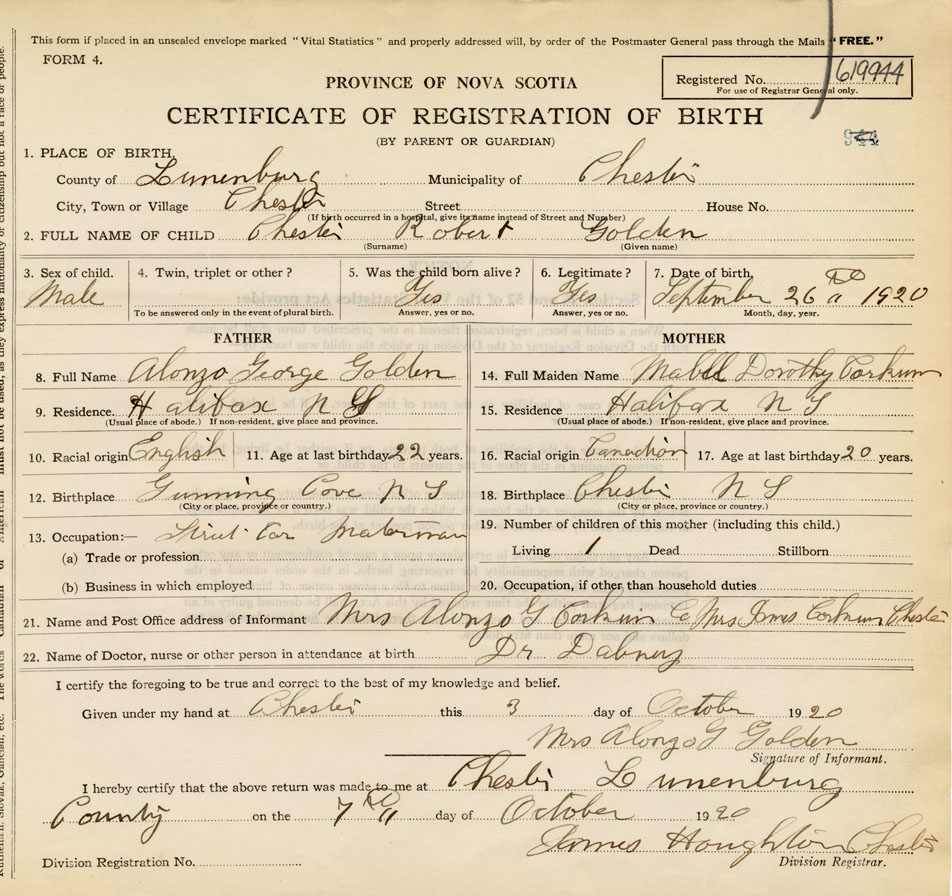 This form if placed in an unsealed envelope marked "Vital Statistics" and properly addressed will, by order of the Postmaster General pass through the Mails "FREE."
FORM 4.
Registered No. 619944
For use of Registrar General only.
PROVINCE OF NOVA SCOTIA
CERTIFICATE OF REGISTRATION OF BIRTH
(BY PARENT OR GUARDIAN)
1. PLACE OF BIRTH,
County of Lunenburg Municipality of Chester
City, Town or Village Chester Street House No.
(If birth occurred in a hospital, give its name instead of Street and Number)
2. FULL NAME OF CHILD Chester Robert Golden
(Surname) (Given name)
3. Sex of child. 4. Twin, triplet or other? 5. Was the child born alive? 6. Legitimate? 7. Date of birth,
Male Yes Yes September 26th 1920
To be answered only in the event of plural birth. Answer, yes or no. Answer, yes or no. Month, day, year.
FATHER MOTHER
8. Full Name Alonzo George Golden 14. Full Maiden Name Mabell Dorothy Corkum
9. Residence. Halifax N S 15. Residence Halifax N S
(Usual place of abode.) If non-resident, give place and province. (Usual place of abode.) If non-resident, give place and province.
10. Racial origin English 11. Age at last birthday 22 years. 16. Racial origin Canadian 17. Age at last birthday 20 years.
12. Birthplace Gunning Cove N S 18. Birthplace Chester N S
(City or place, province or country.) (City or place, province or country.)
13. Occupation:— Street Car Moterman 19. Number of children of this mother (including this child.)
(a) Trade or profession Living 1 Dead Stillborn
(b) Business in which employed 20. Occupation, if other than household duties
21. Name and Post Office address of Informant Mrs Alonzo G Corkum Mrs James Corkum Chester
22. Name of Doctor, nurse or other person in attendance at birth Dr Dabney
I certify the foregoing to be true and correct to the best of my knowledge and belief.
Given under my hand at Chester this 3 day of October 1920
Mrs Alonzo G Golden
Signature of Informant.
I hereby certify that the above return was made to me at Chester Lunenburg
County on the 7th day of October 1920
James Houghton Chester
Division Registration No. Division Registrar.